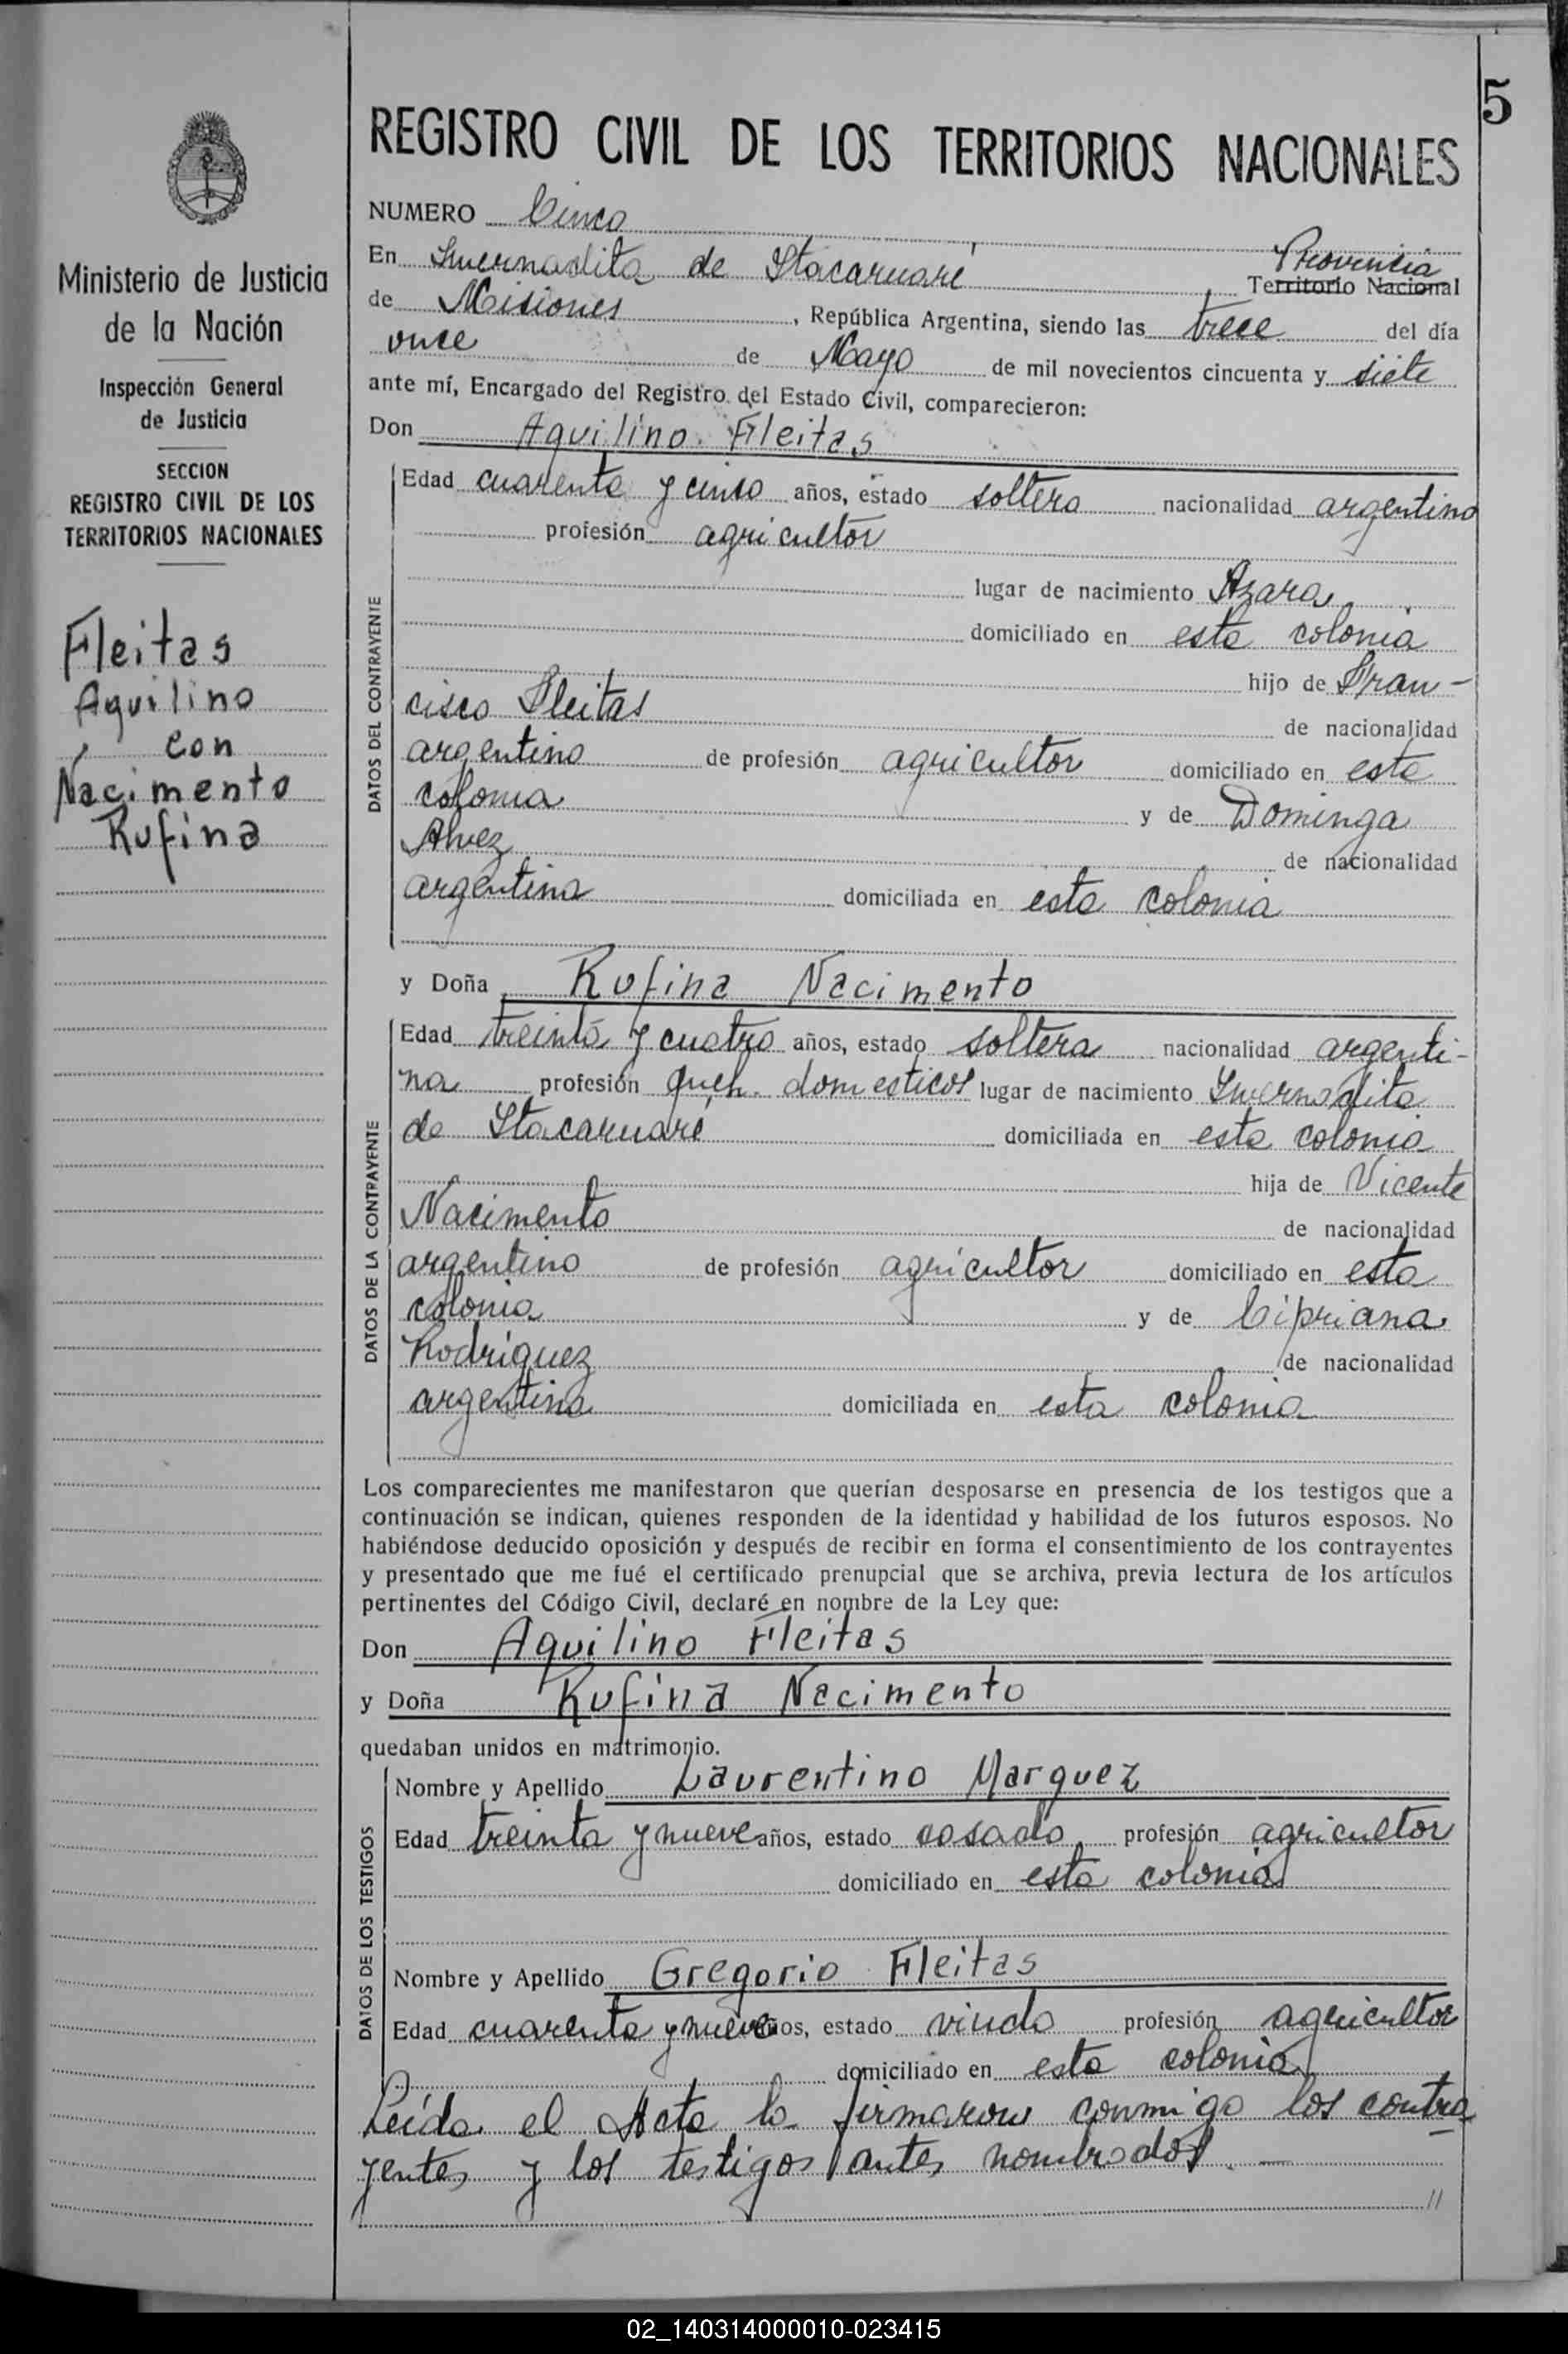 5
Ministerio de Justicia
de la Nación
Inspección General
de Justicia
SECCION
REGISTRO CIVIL DE LOS
TERRITORIOS NACIONALES
Fleitas
Aquilino
con
Nacimento
Rufina
REGISTRO CIVIL DE LOS TERRITORIOS NACIONALES
NUMERO Cinco
Provincia
En Invernadita de Itacaruaré Territorio Nacional
de Misiones, República Argentina, siendo las trece del día
once de Mayo de mil novecientos cincuenta y siete
ante mí, Encargado del Registro del Estado Civil, comparecieron:
Don Aquilino Fleitas
DATOS DEL CONTRAYENTE
Edad cuarenta y cinco años, estado soltero nacionalidad argentino
profesión agricultor
lugar de nacimiento Azara
domiciliado en esta colonia
hijo de Fran-
cisco Fleitas de nacionalidad
argentino de profesión agricultor domiciliado en esta
colonia y de Dominga
Alvez de nacionalidad
argentina domiciliada en esta colonia
y Doña Rufina Nacimento
DATOS DE LA CONTRAYENTE
Edad treinta y cuatro años, estado soltera nacionalidad argenti-
na profesión queh. domesticos lugar de nacimiento Invernadita
de Itacaruaré domiciliada en esta colonia
hija de Vicente
Nacimento de nacionalidad
argentino de profesión agricultor domiciliado en esta
colonia y de Cipriana
Rodríguez de nacionalidad
argentina domiciliada en esta colonia
Los comparecientes me manifestaron que querían desposarse en presencia de los testigos que a
continuación se indican, quienes responden de la identidad y habilidad de los futuros esposos. No
habiéndose deducido oposición y después de recibir en forma el consentimiento de los contrayentes
y presentado que me fué el certificado prenupcial que se archiva, previa lectura de los artículos
pertinentes del Código Civil, declaré en nombre de la Ley que:
Don Aquilino Fleitas
y Doña Rufina Nacimento
quedaban unidos en matrimonio.
DATOS DE LOS TESTIGOS
Nombre y Apellido Laurentino Marquez
Edad treinta y nueve años, estado casado profesión agricultor
domiciliado en esta colonia
Nombre y Apellido Gregorio Fleitas
Edad cuarenta y nueve años, estado viudo profesión agricultor
domiciliado en esta colonia
Leída el Acta la firmaron conmigo los contra
yentes y los testigos antes nombrados. —
//
02_140314000010-023415